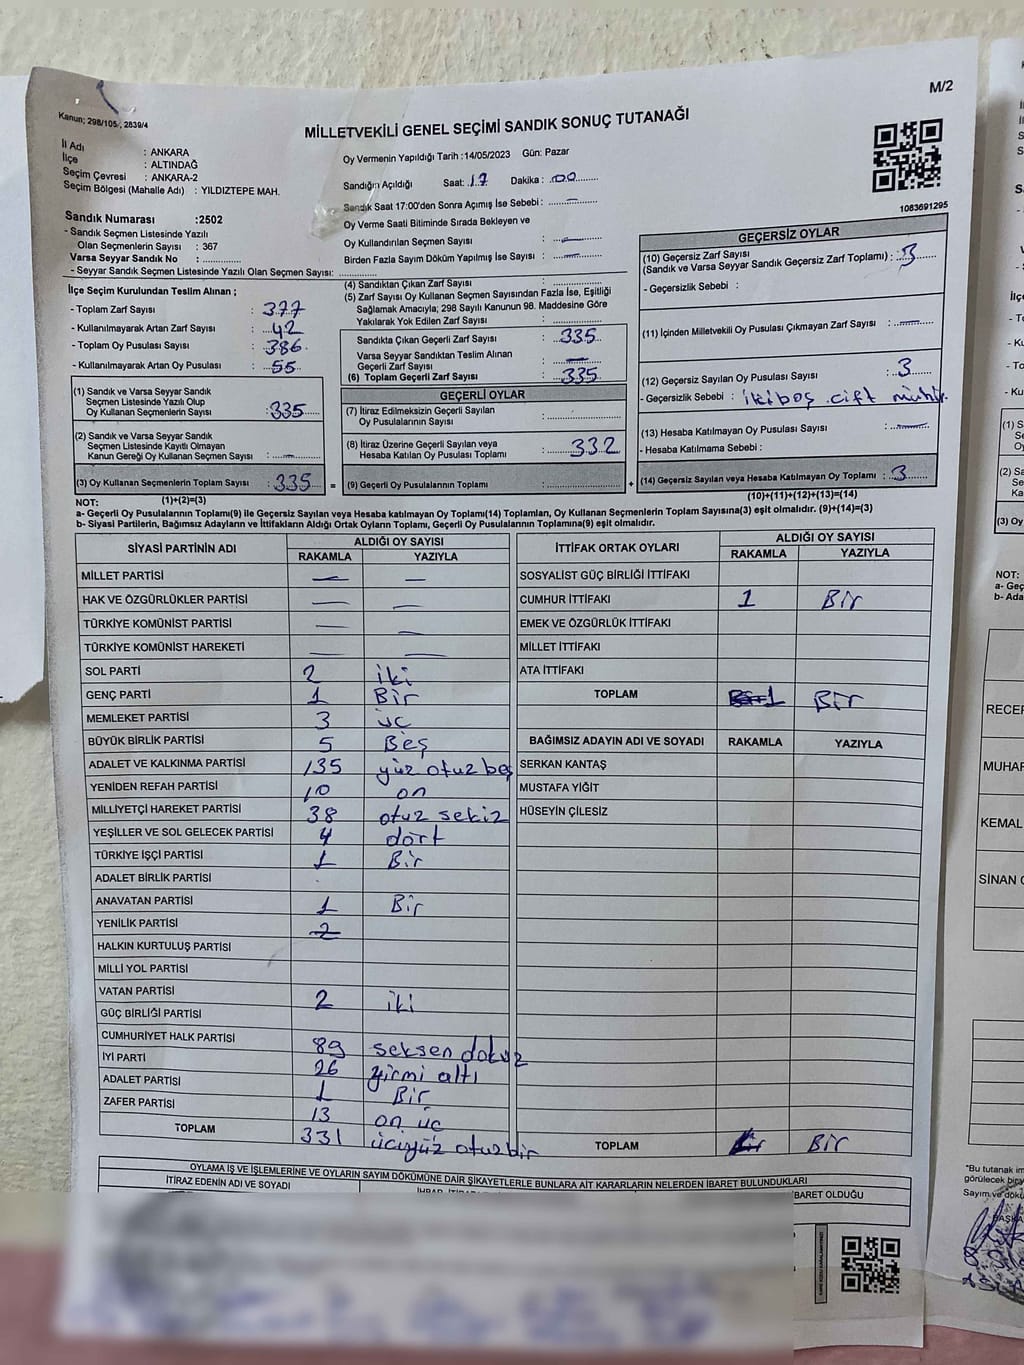 M/2
Kanun; 298/105-, 2839/4
MİLLETVEKİLİ GENEL SEÇİMİ SANDIK SONUÇ TUTANAĞI
İl Adı : ANKARA
İlçe : ALTINDAĞ
Seçim Çevresi : ANKARA-2
Seçim Bölgesi (Mahalle Adı) : YILDIZTEPE MAH.
Sandık Numarası :2502
- Sandık Seçmen Listesinde Yazılı
Olan Seçmenlerin Sayısı : 367
Varsa Seyyar Sandık No :
- Seyyar Sandık Seçmen Listesinde Yazılı Olan Seçmen Sayısı:
Oy Vermenin Yapıldığı Tarih :14/05/2023 Gün: Pazar
Sandığın Açıldığı Saat: 17 Dakika : 00
Sandık Saat 17:00'den Sonra Açımış İse Sebebi : —
Oy Verme Saati Bitiminde Sırada Bekleyen ve
Oy Kullandırılan Seçmen Sayısı : —
Birden Fazla Sayım Döküm Yapılmış İse Sayısı : —
1083691295
İlçe Seçim Kurulundan Teslim Alınan ;
- Toplam Zarf Sayısı : 377
- Kullanılmayarak Artan Zarf Sayısı : 42
- Toplam Oy Pusulası Sayısı : 386
- Kullanılmayarak Artan Oy Pusulası : 55
(1) Sandık ve Varsa Seyyar Sandık
Seçmen Listesinde Yazılı Olup
Oy Kullanan Seçmenlerin Sayısı : 335
(2) Sandık ve Varsa Seyyar Sandık
Seçmen Listesinde Kayıtlı Olmayan
Kanun Gereği Oy Kullanan Seçmen Sayısı : —
(3) Oy Kullanan Seçmenlerin Toplam Sayısı : 335
(1)+(2)=(3)
(4) Sandıktan Çıkan Zarf Sayısı :
(5) Zarf Sayısı Oy Kullanan Seçmen Sayısından Fazla İse, Eşitliği
Sağlamak Amacıyla; 298 Sayılı Kanunun 98. Maddesine Göre
Yakılarak Yok Edilen Zarf Sayısı :
Sandıkta Çıkan Geçerli Zarf Sayısı : 335
Varsa Seyyar Sandıktan Teslim Alınan
Geçerli Zarf Sayısı : —
(6) Toplam Geçerli Zarf Sayısı : 335
GEÇERLİ OYLAR
(7) İtiraz Edilmeksizin Geçerli Sayılan
Oy Pusulasının Sayısı :
(8) İtiraz Üzerine Geçerli Sayılan veya
Hesaba Katılan Oy Pusulası Toplamı : 332
= (9) Geçerli Oy Pusulalarının Toplamı : +
GEÇERSİZ OYLAR
(10) Geçersiz Zarf Sayısı
(Sandık ve Varsa Seyyar Sandık Geçersiz Zarf Toplamı) : 3
- Geçersizlik Sebebi :
(11) İçinden Milletvekili Oy Pusulası Çıkmayan Zarf Sayısı : —
(12) Geçersiz Sayılan Oy Pusulası Sayısı : 3
- Geçersizlik Sebebi : iki boş çift mühür
(13) Hesaba Katılmayan Oy Pusulası Sayısı : —
- Hesaba Katılmama Sebebi :
(14) Geçersiz Sayılan veya Hesaba Katılmayan Oy Toplamı : 3
(10)+(11)+(12)+(13)=(14)
NOT:
a- Geçerli Oy Pusulalarının Toplamı(9) ile Geçersiz Sayılan veya Hesaba Katılmayan Oy Toplamı(14) Toplamları, Oy Kullanan Seçmenlerin Toplam Sayısına(3) eşit olmalıdır. (9)+(14)=(3)
b- Siyasi Partilerin, Bağımsız Adayların ve İttifakların Aldığı Ortak Oyların Toplamı, Geçerli Oy Pusulalarının Toplamına(9) eşit olmalıdır.
SİYASİ PARTİNİN ADI ALDIĞI OY SAYISI
RAKAMLA YAZIYLA
MİLLET PARTİSİ — —
HAK VE ÖZGÜRLÜKLER PARTİSİ — —
TÜRKİYE KOMÜNİST PARTİSİ — —
TÜRKİYE KOMÜNİST HAREKETİ — —
SOL PARTİ 2 iki
GENÇ PARTİ 1 Bir
MEMLEKET PARTİSİ 3 üc
BÜYÜK BİRLİK PARTİSİ 5 Beş
ADALET VE KALKINMA PARTİSİ 135 yüz otuz beş
YENİDEN REFAH PARTİSİ 10 on
MİLLİYETÇİ HAREKET PARTİSİ 38 otuz sekiz
YEŞİLLER VE SOL GELECEK PARTİSİ 4 dört
TÜRKİYE İŞÇİ PARTİSİ 1 Bir
ADALET BİRLİK PARTİSİ
ANAVATAN PARTİSİ 1 Bir
YENİLİK PARTİSİ 2
HALKIN KURTULUŞ PARTİSİ
MİLLİ YOL PARTİSİ
VATAN PARTİSİ 2 iki
GÜÇ BİRLİĞİ PARTİSİ
CUMHURİYET HALK PARTİSİ 89 seksen dokuz
İYİ PARTİ 26 yirmi altı
ADALET PARTİSİ 1 Bir
ZAFER PARTİSİ 13 on üc
TOPLAM 331 üciyüz otuz bir
İTTİFAK ORTAK OYLARI ALDIĞI OY SAYISI
RAKAMLA YAZIYLA
SOSYALİST GÜÇ BİRLİĞİ İTTİFAKI
CUMHUR İTTİFAKI 1 Bir
EMEK VE ÖZGÜRLÜK İTTİFAKI
MİLLET İTTİFAKI
ATA İTTİFAKI
TOPLAM 1 Bir
BAĞIMSIZ ADAYIN ADI VE SOYADI RAKAMLA YAZIYLA
SERKAN KANTAŞ
MUSTAFA YİĞİT
HÜSEYİN ÇİLESİZ
TOPLAM Bir
OYLAMA İŞ VE İŞLEMLERİNE VE OYLARIN SAYIM DÖKÜMÜNE DAİR ŞİKAYETLERLE BUNLARA AİT KARARLARIN NELERDEN İBARET BULUNDUKLARI
İTİRAZ EDENİN ADI VE SOYADI
İBARET OLDUĞU
NOT:
a- Geç
b- Ada
RECEP
MUHAR
KEMAL
SİNAN O
"Bu tutanak im
görülecek bir
Sayım ve dökü